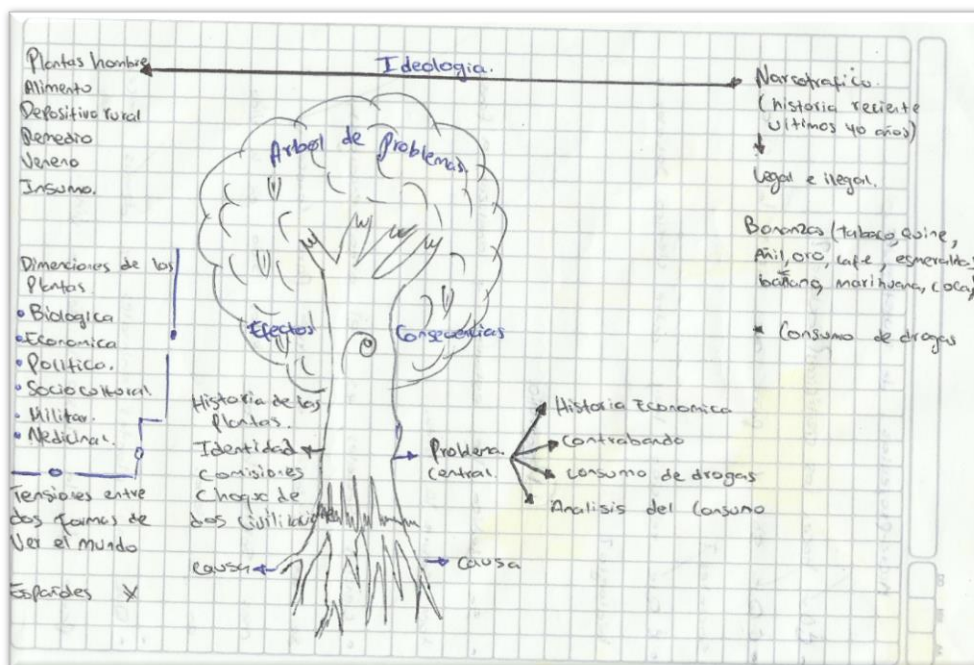 Ideologia.
Plantas hombre
Alimento
Depositivo rural
Remedio
Veneno
Insumo.
Narcotrafico.
(historia reciente
ultimos 40 años)
legal e ilegal.
Bonanzas (tabaco, quine,
Añil, oro, cafe, esmeralda,
banano, marihuana, coca)
* Consumo de drogas
Arbol de Problemas.
Efectos
Consecuencias
Dimenciones de las
Plantas
• Biologica
• Economica
• Politico.
• Sociocultural.
• Militar.
• Medicinal.
Tensiones entre
dos formas de
Ver el mundo
Españoles X
Historia de las
Plantas.
Identidad
Comisiones
Choque de
dos
causa
Problema
central.
Historia Economica
Contrabando
Consumo de drogas
Analisis del Consumo
causa